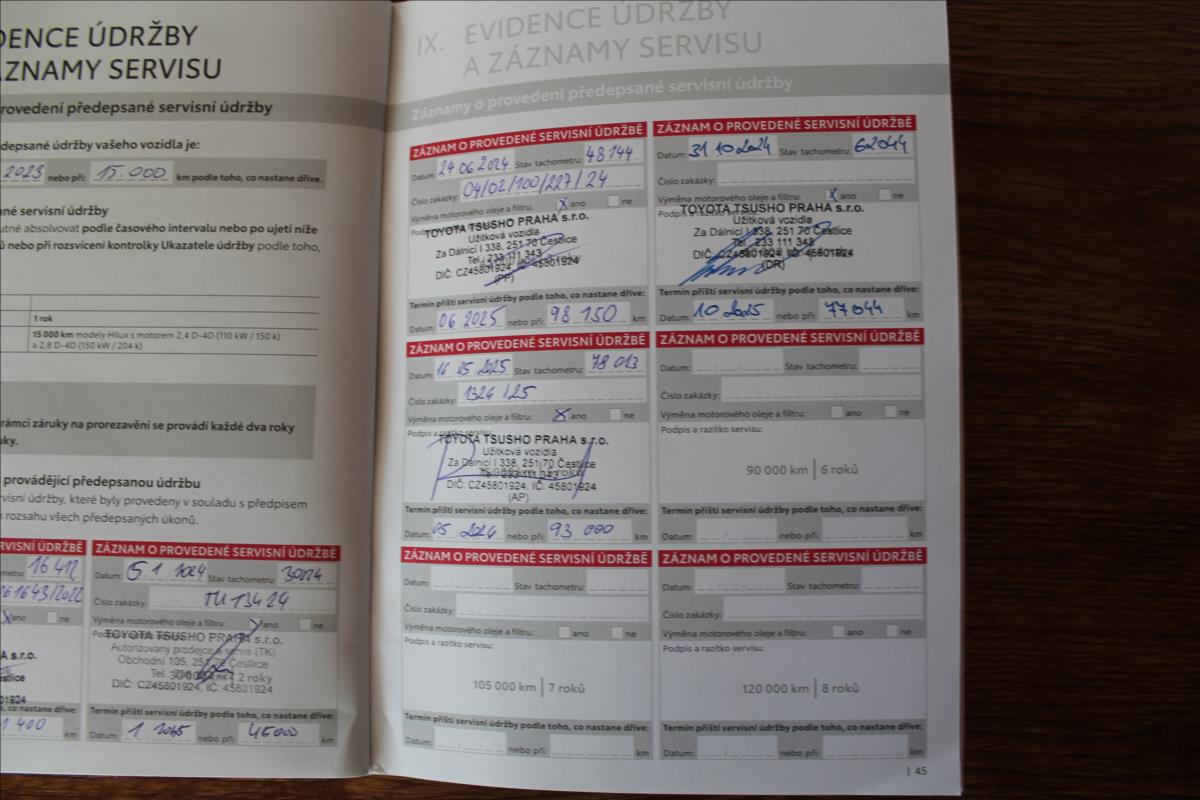 DENCE ÚDRŽBY
ÁZNAMY SERVISU
rovedení předepsané servisní údržby
depsané údržby vašeho vozidla je:
2023 nebo při: 15.000 km podle toho, co nastane dříve.
né servisní údržby
utné absolvovat podle časového intervalu nebo po ujetí níže
ů nebo při rozsvícení kontrolky Ukazatele údržby podle toho,
1 rok
15 000 km modely Hilux s motorem 2,4 D-4D (110 kW / 150 k)
a 2,8 D-4D (150 kW / 204 k)
rámci záruky na prorezavění se provádí každé dva roky
uky.
provádějící předepsanou údržbu
visní údržby, které byly provedeny v souladu s předpisem
rozsahu všech předepsaných úkonů.
RVISNÍ ÚDRŽBĚ
metru: 16 412
X ano ne
A s.r.o.
stlice
1924
dříve:
1 400 km
ZÁZNAM O PROVEDENÉ SERVISNÍ ÚDRŽBĚ
Datum: 5 1 2024 Stav tachometru: 30024
Číslo zakázky: TU 134 24
Výměna motorového oleje a filtru: X ano ne
TOYOTA TSUSHO PRAHA s.r.o.
Autorizovaný prodejce a servis (TK)
Obchodní 105, 251 70 Čestlice
2 roky
DIČ: CZ45801924, IČ: 45801924
Termín příští servisní údržby podle toho, co nastane dříve:
Datum: nebo při: 45000 km
IX. EVIDENCE ÚDRŽBY
A ZÁZNAMY SERVISU
Záznamy o provedení předepsané servisní údržby
ZÁZNAM O PROVEDENÉ SERVISNÍ ÚDRŽBĚ
Datum: 24 06 2024 Stav tachometru: 48144
Číslo zakázky: 04/02/100/227/24
Výměna motorového oleje a filtru: X ano ne
TOYOTA TSUSHO PRAHA s.r.o.
Užitková vozidla
Za Dálnicí I 338, 251 70 Čestlice
Tel.: 233 111 343
DIČ: CZ45801924, IČ: 45801924
(PP)
Termín příští servisní údržby podle toho, co nastane dříve:
Datum: 06 2025 nebo při: 98 150 km
ZÁZNAM O PROVEDENÉ SERVISNÍ ÚDRŽBĚ
Datum: 31 10 2024 Stav tachometru: 62044
Číslo zakázky:
Výměna motorového oleje a filtru: X ano ne
TOYOTA TSUSHO PRAHA s.r.o.
Užitková vozidla
Za Dálnicí I 338, 251 70 Čestlice
Tel.: 233 111 343
DIČ: CZ45801924, IČ: 45801924
(DR)
Termín příští servisní údržby podle toho, co nastane dříve:
Datum: 10 2025 nebo při: 77044 km
ZÁZNAM O PROVEDENÉ SERVISNÍ ÚDRŽBĚ
Datum: 16 05 2025 Stav tachometru: 78 013
Číslo zakázky: 1324 /25
Výměna motorového oleje a filtru: X ano ne
Podpis a razítko servisu:
TOYOTA TSUSHO PRAHA s.r.o.
Užitková vozidla
Za Dálnicí I 338, 251 70 Čestlice
DIČ: CZ45801924, IČ: 45801924
(AP)
Termín příští servisní údržby podle toho, co nastane dříve:
Datum: 05 2026 nebo při: 93 000 km
ZÁZNAM O PROVEDENÉ SERVISNÍ ÚDRŽBĚ
Datum: Stav tachometru:
Číslo zakázky:
Výměna motorového oleje a filtru: ano ne
Podpis a razítko servisu:
90 000 km | 6 roků
Termín příští servisní údržby podle toho, co nastane dříve:
Datum: nebo při: km
ZÁZNAM O PROVEDENÉ SERVISNÍ ÚDRŽBĚ
Datum: Stav tachometru:
Číslo zakázky:
Výměna motorového oleje a filtru: ano ne
Podpis a razítko servisu:
105 000 km | 7 roků
Termín příští servisní údržby podle toho, co nastane dříve:
Datum: nebo při: km
ZÁZNAM O PROVEDENÉ SERVISNÍ ÚDRŽBĚ
Datum: Stav tachometru:
Číslo zakázky:
Výměna motorového oleje a filtru: ano ne
Podpis a razítko servisu:
120 000 km | 8 roků
Termín příští servisní údržby podle toho, co nastane dříve:
Datum: nebo při: km
| 45